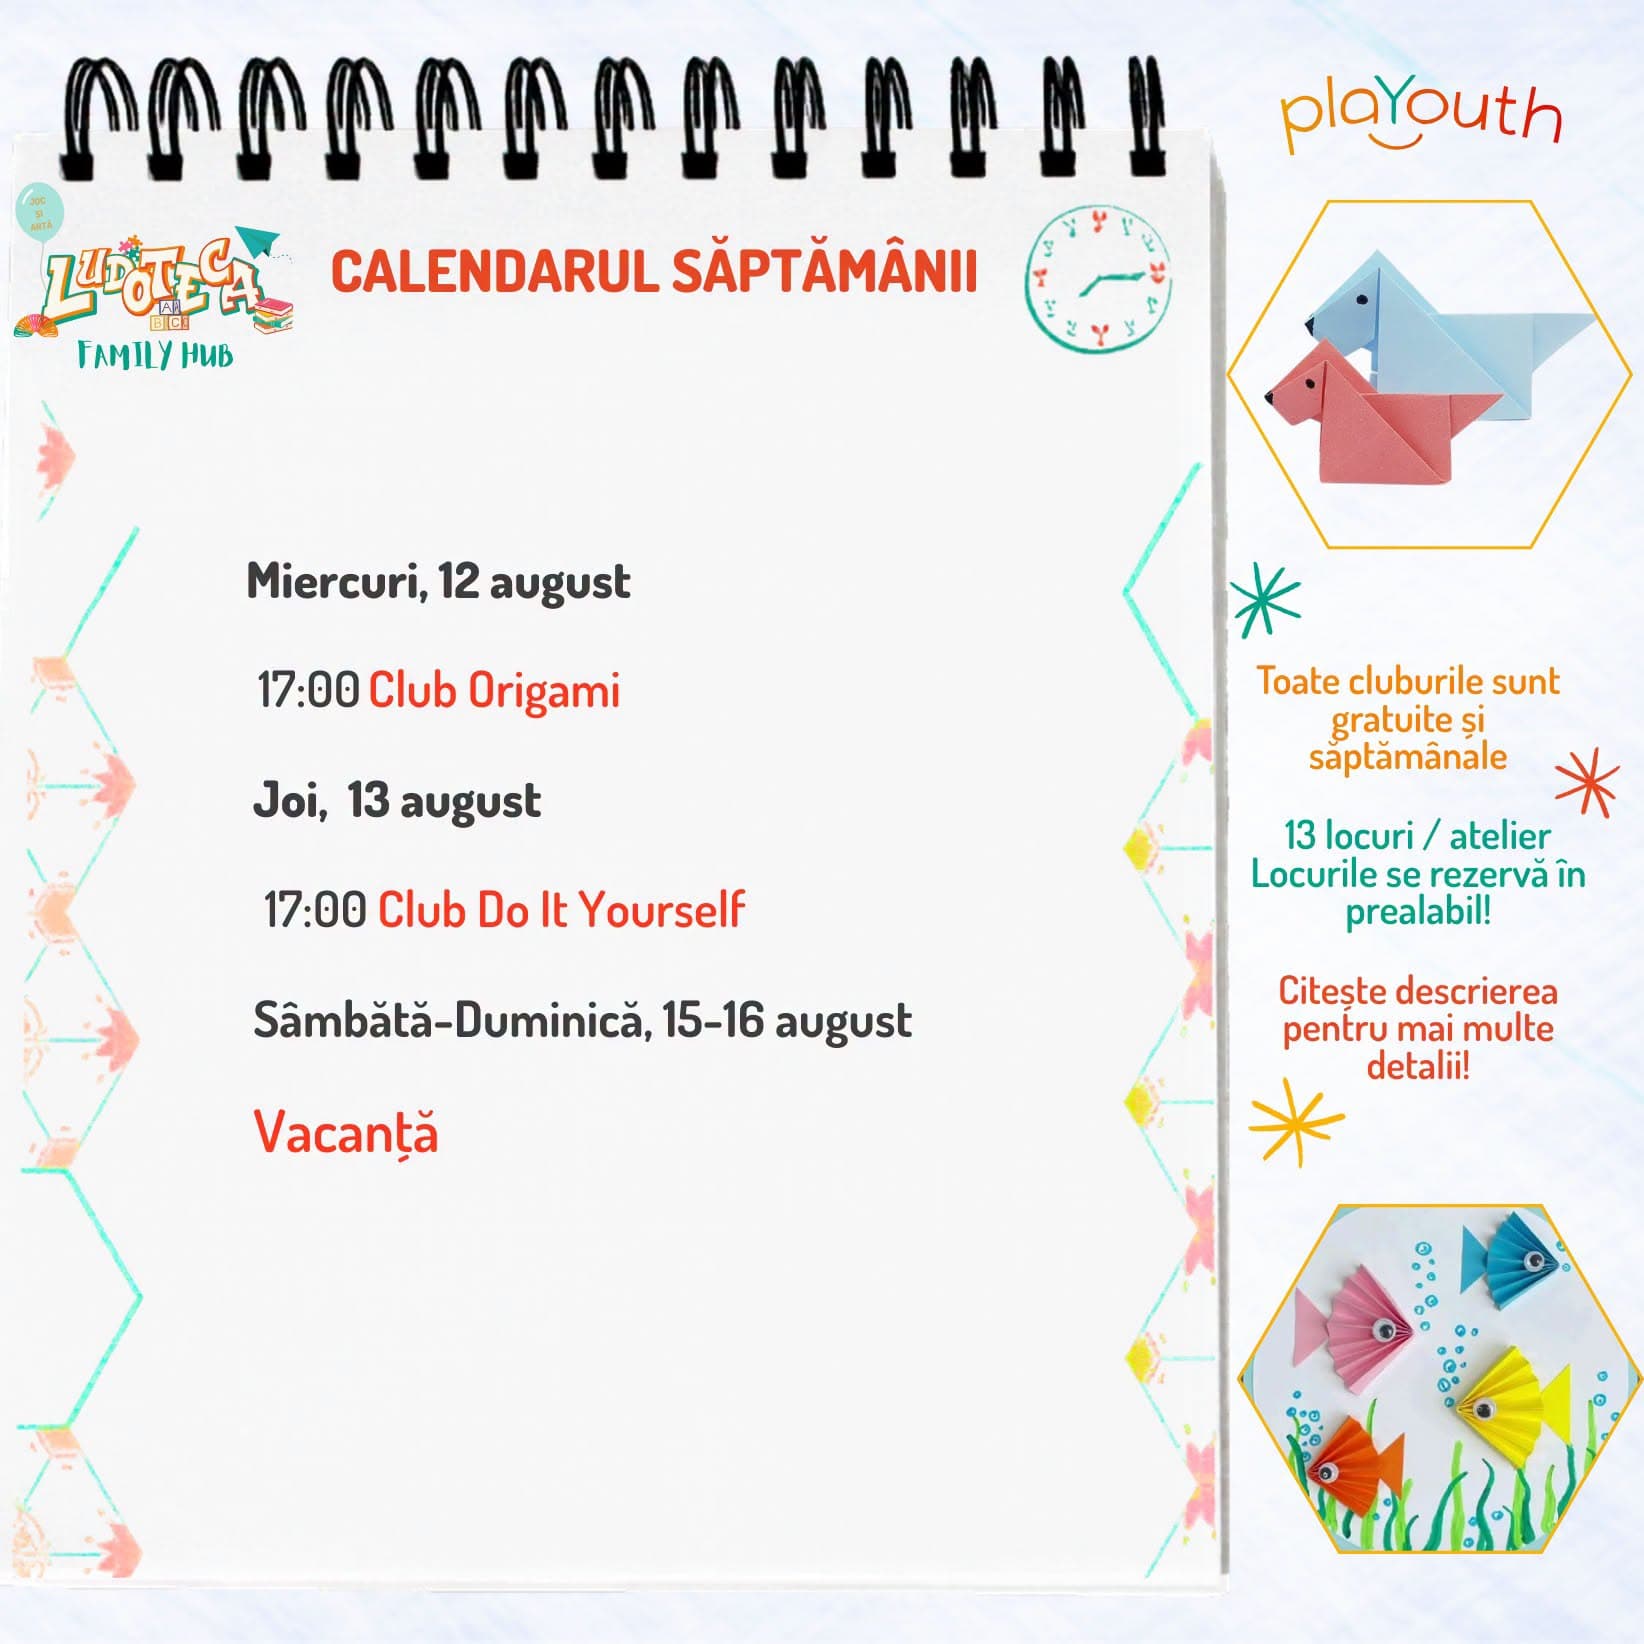 plaYouth
JOC
SI
ARTĂ
LUDOTECA
FAMILY HUB
CALENDARUL SĂPTĂMÂNII
Miercuri, 12 august
17:00 Club Origami
Joi, 13 august
17:00 Club Do It Yourself
Sâmbătă-Duminică, 15-16 august
Vacanță
Toate cluburile sunt
gratuite și
săptămânale
13 locuri / atelier
Locurile se rezervă în
prealabil!
Citește descrierea
pentru mai multe
detalii!